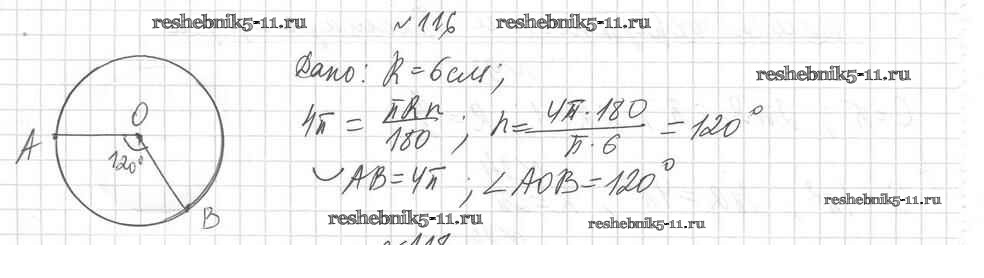 reshebnik5-11.ru №116 reshebnik5-11.ru
Дано: R = 6 см;
reshebnik5-11.ru
4π = πRn/180 ; n = 4π·180/π·6 = 120°
O
A
120°
B
◡AB = 4π ; ∠AOB = 120°
reshebnik5-11.ru
reshebnik5-11.ru
reshebnik5-11.ru